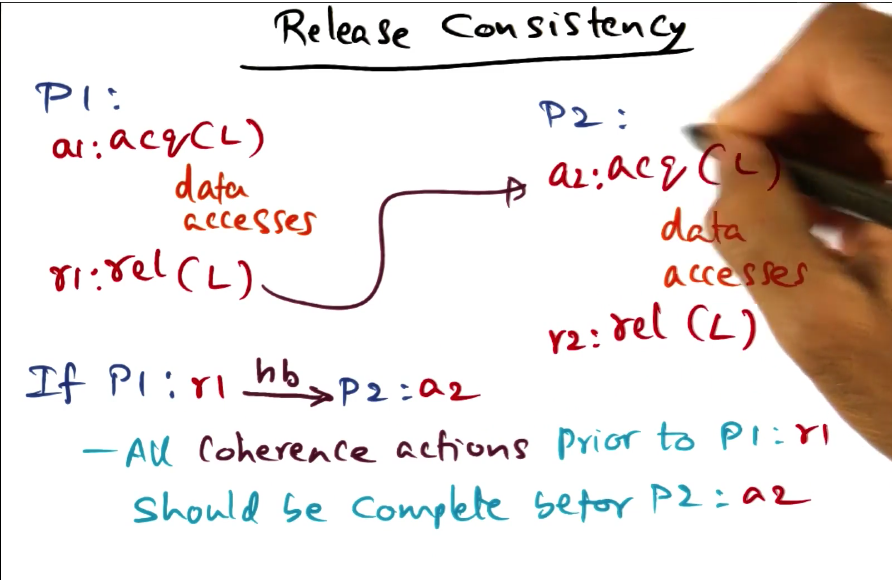 Release Consistency
P1:
a1: acq(L)
data
accesses
r1: rel(L)
P2:
a2: acq(L)
data
accesses
r2: rel(L)
If P1: r1 hb P2: a2
- All Coherence actions prior to P1: r1
Should be complete befor P2: a2